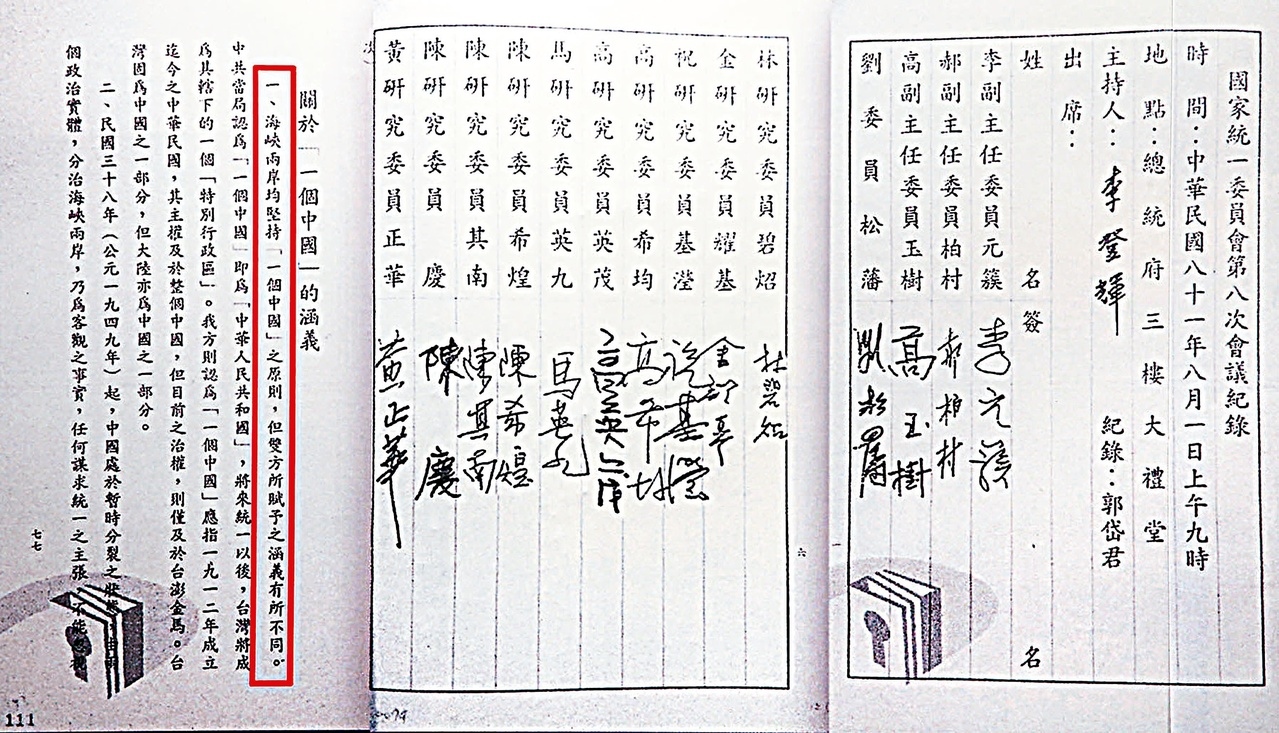 國家統一委員會第八次會議紀錄
時　間：中華民國八十一年八月一日上午九時
地　點：總統府三樓大禮堂
主持人：李登輝　紀錄：郭岱君
出　席：
姓　名　簽　名
李副主任委員元簇　李元簇
郝副主任委員柏村　郝柏村
高副主任委員玉樹　高玉樹
劉委員松藩　劉松藩
一
林研究委員碧炤　林碧炤
金研究委員耀基　金耀基
祝研究委員基瀅　祝基瀅
高研究委員希均　高希均
高研究委員英茂　高英茂
馬研究委員英九　馬英九
陳研究委員希煌　陳希煌
陳研究委員其南　陳其南
陳研究委員　慶　陳慶
黃研究委員正華　黃正華
六
關於「一個中國」的涵義
一、海峽兩岸均堅持「一個中國」之原則，但雙方所賦予之涵義有所不同。
中共當局認爲「一個中國」即爲「中華人民共和國」，將來統一以後，台灣將成
爲其轄下的一個「特別行政區」。我方則認爲「一個中國」應指一九一二年成立
迄今之中華民國，其主權及於整個中國，但目前之治權，則僅及於台澎金馬。台
灣固爲中國之一部分，但大陸亦爲中國之一部分。
二、民國三十八年（公元一九四九年）起，中國處於暫時分裂之狀
個政治實體，分治海峽兩岸，乃爲客觀之事實，任何謀求統一之主張，不能
七七
111